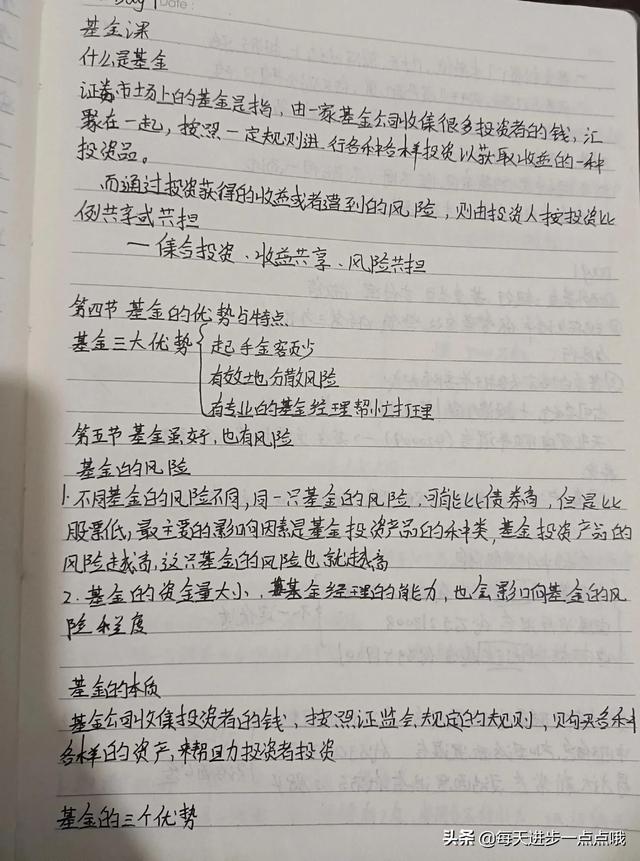 Day 1 Date:
基金课
什么是基金
证券市场上的基金是指，由一家基金公司收集很多投资者的钱，汇
聚在一起，按照一定规则进行各种各样投资以获取收益的一种
投资品。
而通过投资获得的收益或者遭到的风险，则由投资人按投资比
例共享或共担
— 集合投资、收益共享、风险共担
第四节 基金的优势与特点
基金三大优势
起手金额少
有效地分散风险
有专业的基金经理帮忙打理
第五节 基金虽好，也有风险
基金的风险
1. 不同基金的风险不同，同一只基金的风险，可能比债券高，但是比
股票低，最主要的影响因素是基金投资产品的种类，基金投资产品的
风险越高，这只基金的风险也就越高
2. 基金的资金量大小，基金经理的能力，也会影响基金的风
险程度
基金的本质
基金公司收集投资者的钱，按照证监会规定的规则，购买各种
各样的资产，来帮助投资者投资
基金的三个优势
头条 @每天进步一点点哦